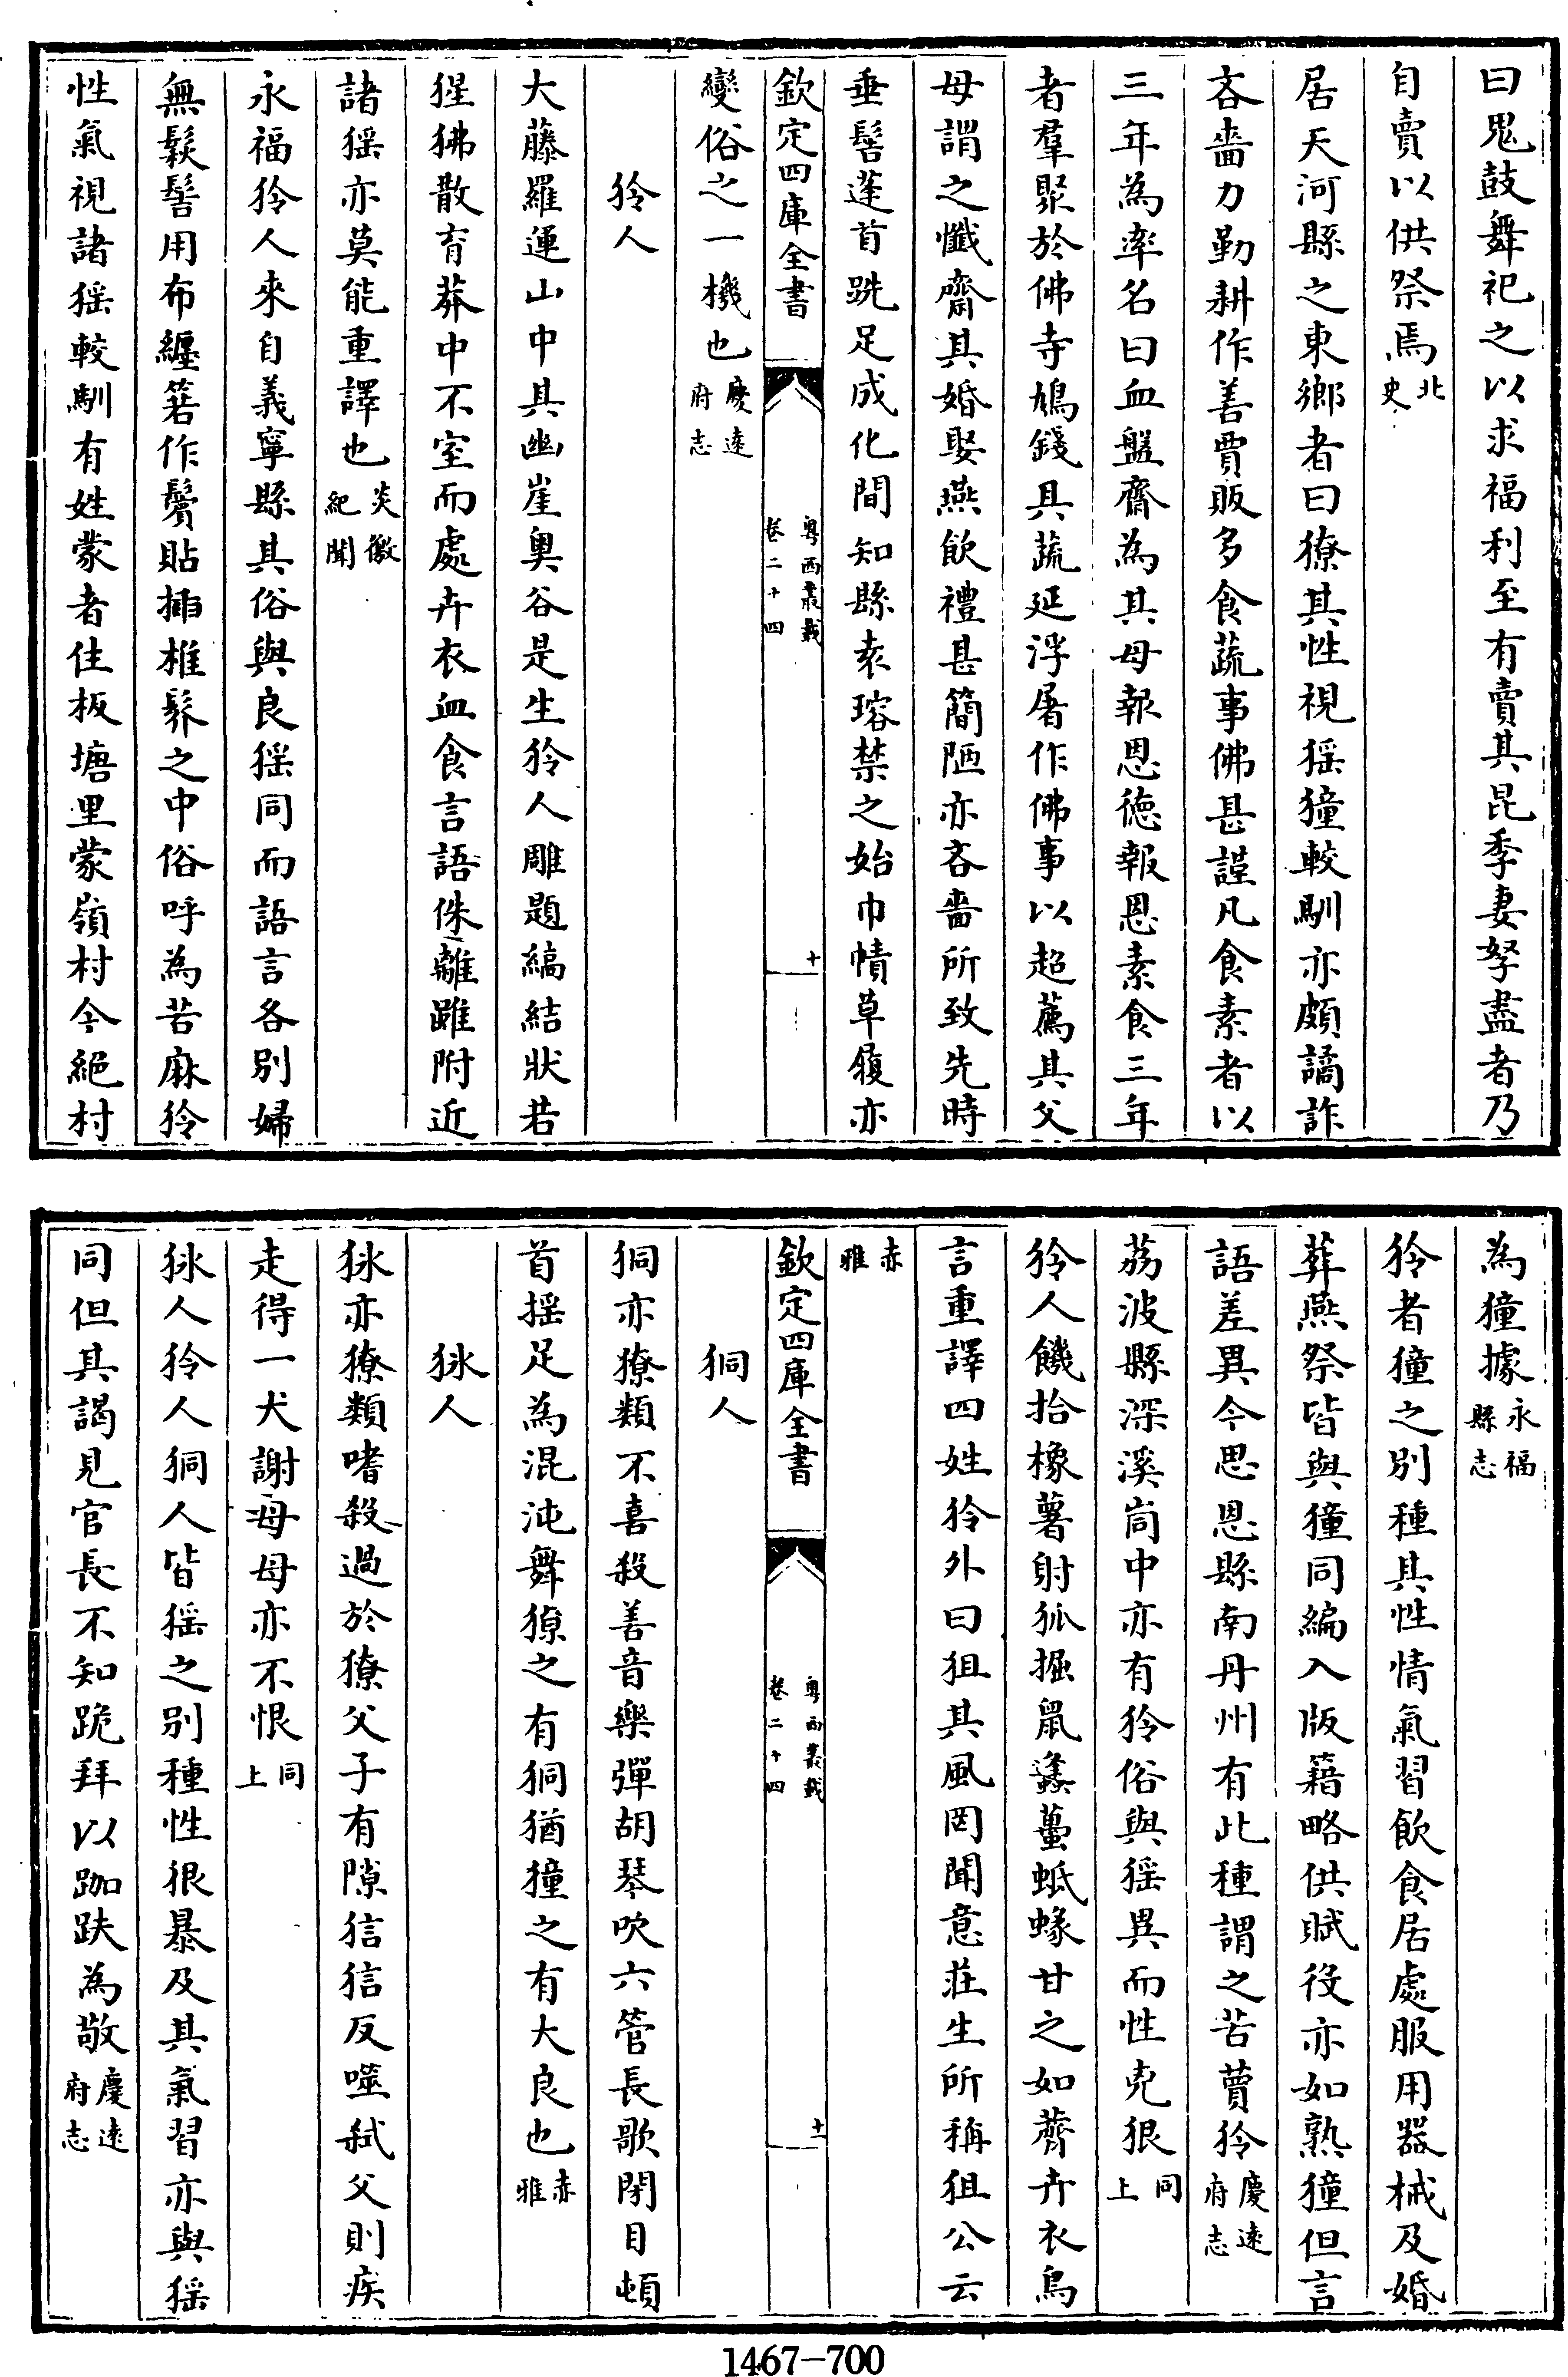 曰鬼鼓舞祀之以求福利至有賣其昆季妻孥盡者乃
自賣以供祭焉北史
居天河縣之東鄉者曰獠其性視猺獞較馴亦頗譎詐
吝嗇力勤耕作善賈販多食蔬事佛甚謹凡食素者以
三年為率名曰血盤齋為其母報恩德報恩素食三年
者羣聚於佛寺鳩錢具蔬延浮屠作佛事以超薦其父
母謂之懺齋其婚娶燕飲禮甚簡陋亦吝嗇所致先時
垂髻蓬首跣足成化間知縣袁瑢禁之始巾幘草履亦
欽定四庫全書
粤西叢載
卷二十四
十
變俗之一機也慶遠府志
狑人
大藤羅運山中其幽崖奥谷是生狑人雕題縞結狀若
猩狒散育莽中不室而處卉衣血食言語侏離雖附近
諸猺亦莫能重譯也炎徼紀聞
永福狑人來自義寧縣其俗與良猺同而語言各別婦
無鬏髻用布纏箬作鬢貼插椎髻之中俗呼為苦麻狑
性氣視諸猺較馴有姓蒙者住板塘里蒙嶺村今絕村
為獞據永福縣志
狑者獞之別種其性情氣習飲食居處服用器械及婚
葬燕祭皆與獞同編入版籍略供賦役亦如熟獞但言
語差異今思恩縣南丹州有此種謂之苦蕒狑慶遠府志
荔波縣深溪峝中亦有狑俗與猺異而性兇狠同上
狑人饑拾橡薯射狐掘鼠蠭蠆蚳蝝甘之如薺卉衣鳥
言重譯四姓狑外曰狙其風罔聞意莊生所稱狙公云
赤雅
欽定四庫全書
粤西叢載
卷二十四
十一
狪人
狪亦獠類不喜殺善音樂彈胡琴吹六管長歌閉目頓
首摇足為混沌舞獠之有狪猶獞之有大良也赤雅
㺱人
㺱亦獠類嗜殺過於獠父子有隙信信反噬弑父則疾
走得一犬謝母母亦不恨同上
㺱人狑人狪人皆猺之別種性很暴及其氣習亦與猺
同但其謁見官長不知跪拜以跏趺為敬慶遠府志
1467-700